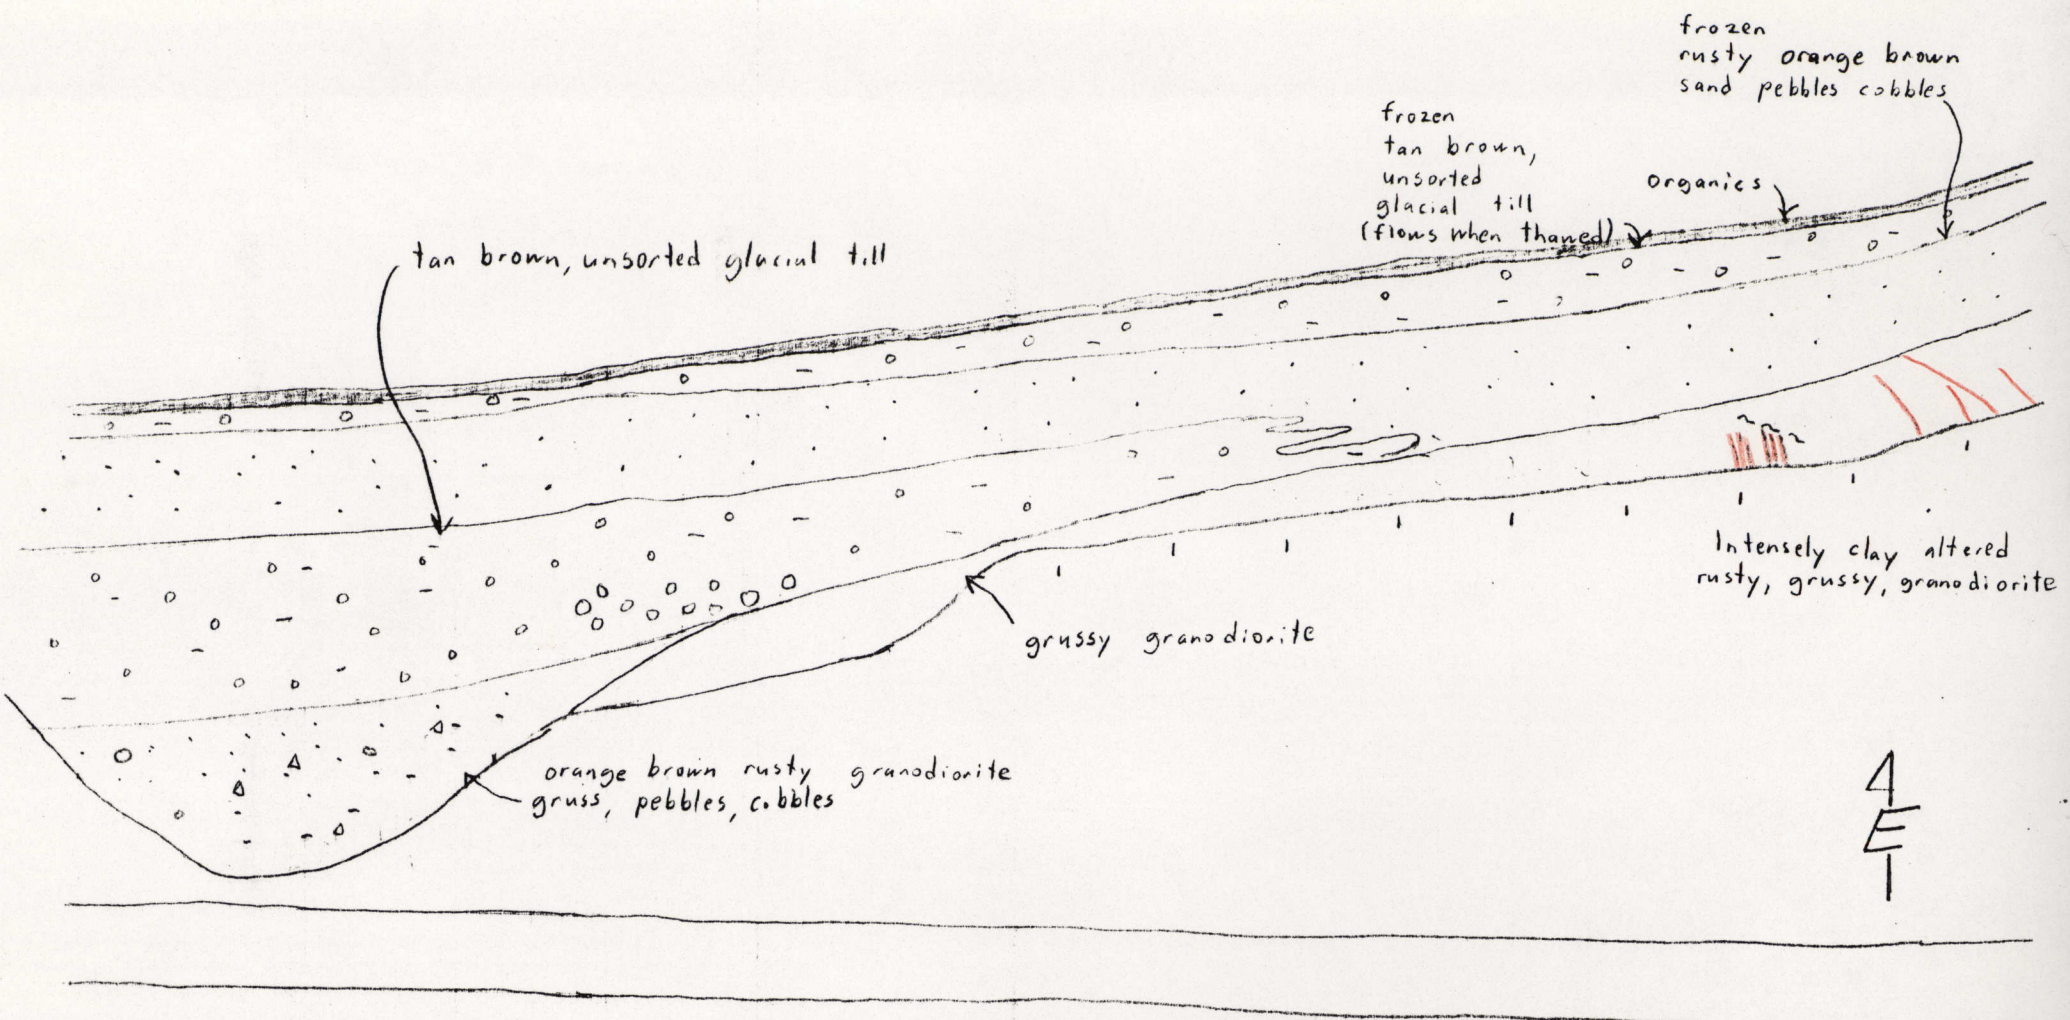 frozen
rusty orange brown
sand pebbles cobbles
frozen
tan brown,
unsorted
glacial till
(flows when thawed)
organics
tan brown, unsorted glacial till
Intensely clay altered
rusty, grussy, granodiorite
grussy granodiorite
orange brown rusty granodiorite
gruss, pebbles, cobbles
E